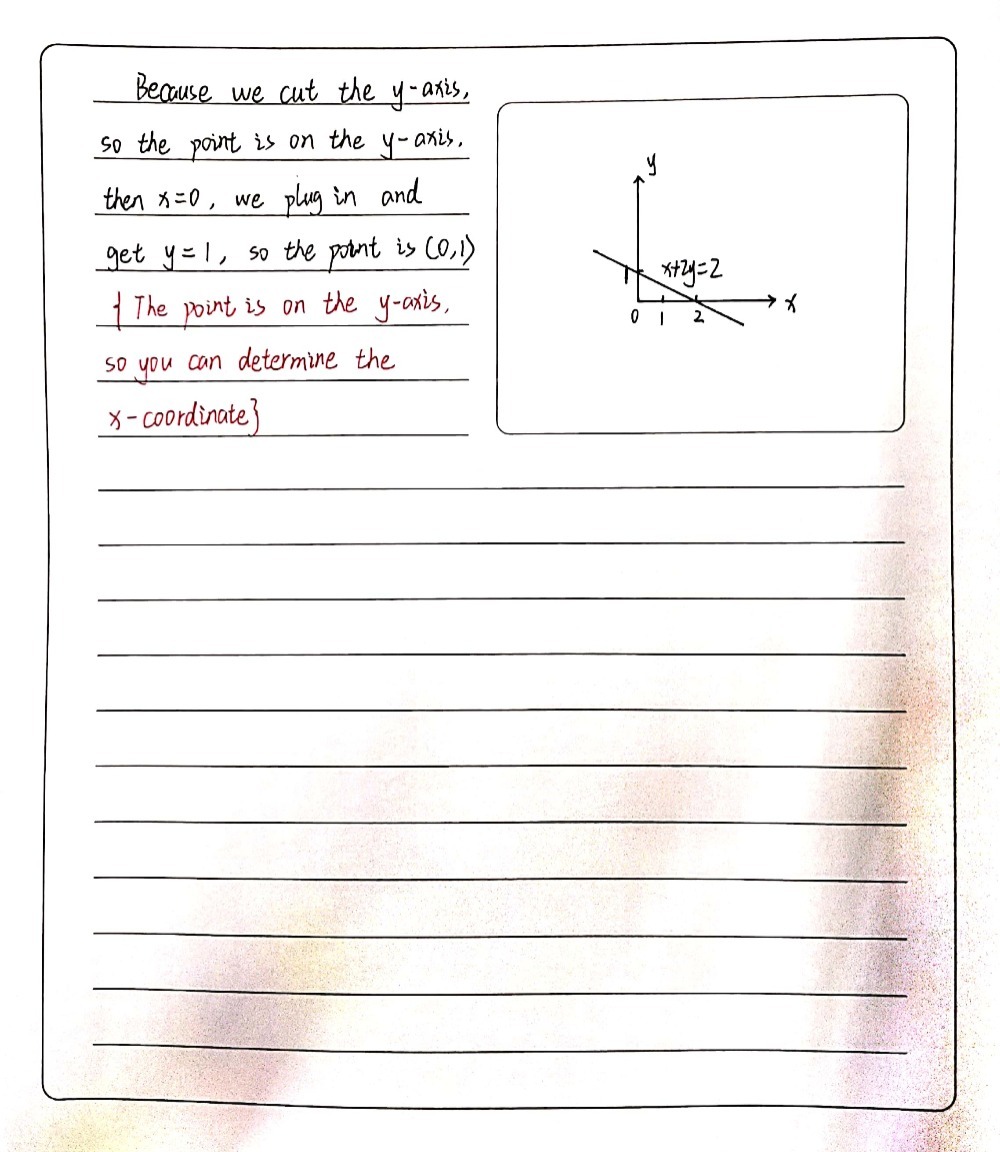 Because we cut the y-axis,
so the point is on the y-axis.
then x=0, we plug in and
get y=1, so the point is (0,1)
{ The point is on the y-axis,
so you can determine the
x-coordinate}
y
1
x+2y=2
x
0 1 2